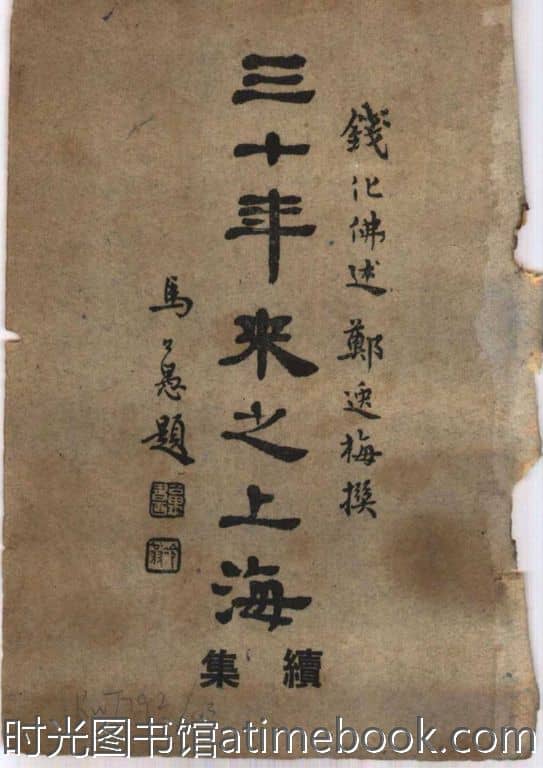 錢化佛述 鄭逸梅撰
三十年來之上海
續集
馬公愚題
时光图书馆atimebook.com